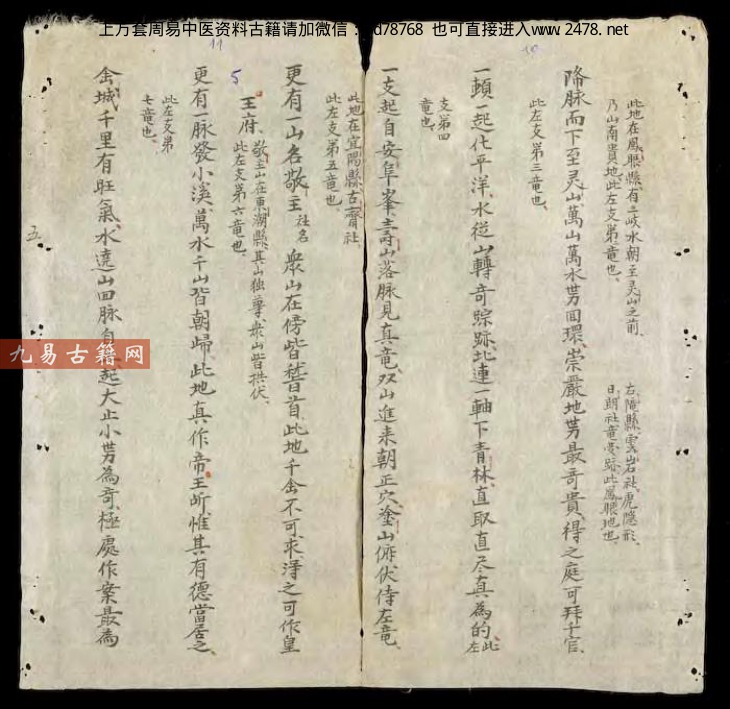 上万套周易中医资料古籍请加微信：d78768 也可直接进入www.2478.net
10
11
5
此地在鳳眼縣有三岐水朝至灵山之前、
乃山南貴地、此左支第 竜也、
右隴縣雲岩社虎隐形、
日朗社竜 跡、此鳳眼地也、
降脉而下至灵山、萬山萬水势回環、崇嚴地势最奇貴、得之庭可拜千官、
此左支第三竜也、
一頓一起化平洋、水從山轉奇踪跡、北連一軸下青林、直取直尽真為的、此左
支第四
竜也、
一支起自安阜峯、壽山落脉見真竜、双山進来朝正穴、釜山俯伏侍左竜、
此地在宜陽縣古齊社、
此左支第五竜也、
更有一山名敬主社名衆山在傍皆稽首、此地千金不可求、得之可作皇
王府、敬主山在東潮縣、其山独尊、衆山皆拱伏、
此左支第六竜也、
更有一脉發小溪、萬水千山皆朝歸、此地真作帝王所、惟其有德當居之、
此左支第
七竜也、
金城千里有旺氣、水遶山回脉自起、大止小势為奇、極處作案最為
五
九易古籍网